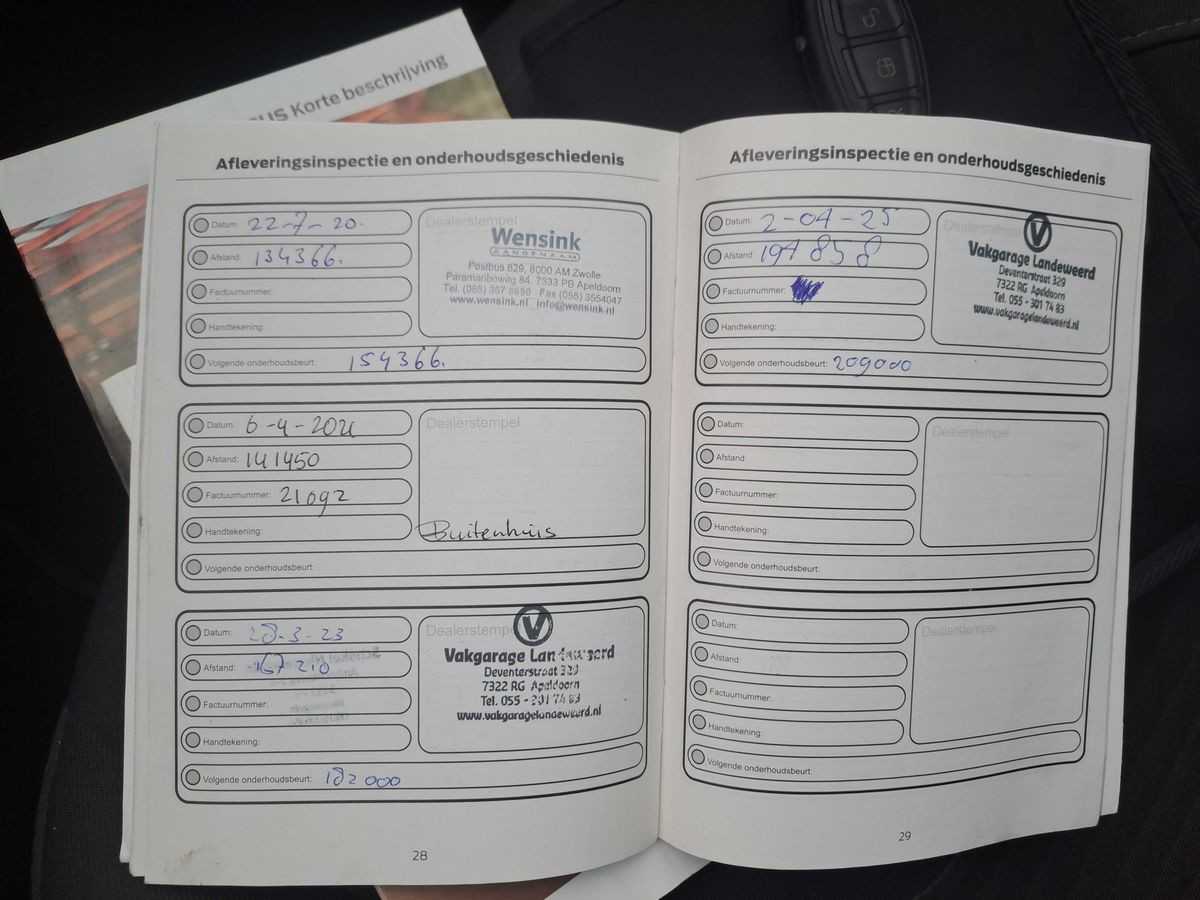 US Korte beschrijving
Afleveringsinspectie en onderhoudsgeschiedenis
Datum: 22-7-20.
Afstand: 134366.
Factuurnummer:
Handtekening:
Volgende onderhoudsbeurt: 154366.
Dealerstempel
Wensink
AANGENAAM
Postbus 629, 8000 AM Zwolle
Paramariboweg 84, 7333 PB Apeldoorn
Tel. (055) 357 8890 Fax (055) 3554047
www.wensink.nl info@wensink.nl
Datum: 6-4-2021
Afstand: 141450
Factuurnummer: 21092
Handtekening:
Volgende onderhoudsbeurt:
Dealerstempel
Buitenhuis
Datum: 28-3-23
Afstand: 167210
Factuurnummer:
Handtekening:
Volgende onderhoudsbeurt: 182000
Dealerstempel
Vakgarage Landeweerd
Deventerstraat 329
7322 RG Apeldoorn
Tel. 055 - 301 74 83
www.vakgaragelandeweerd.nl
28
Afleveringsinspectie en onderhoudsgeschiedenis
Datum: 2-04-25
Afstand 194858
Factuurnummer:
Handtekening:
Volgende onderhoudsbeurt: 209000
Dealerstempel
Vakgarage Landeweerd
Deventerstraat 329
7322 RG Apeldoorn
Tel. 055 - 301 74 83
www.vakgaragelandeweerd.nl
Datum:
Afstand
Factuurnummer:
Handtekening:
Volgende onderhoudsbeurt:
Dealerstempel
Datum:
Afstand:
Factuurnummer:
Handtekening:
Volgende onderhoudsbeurt:
Dealerstempel
29